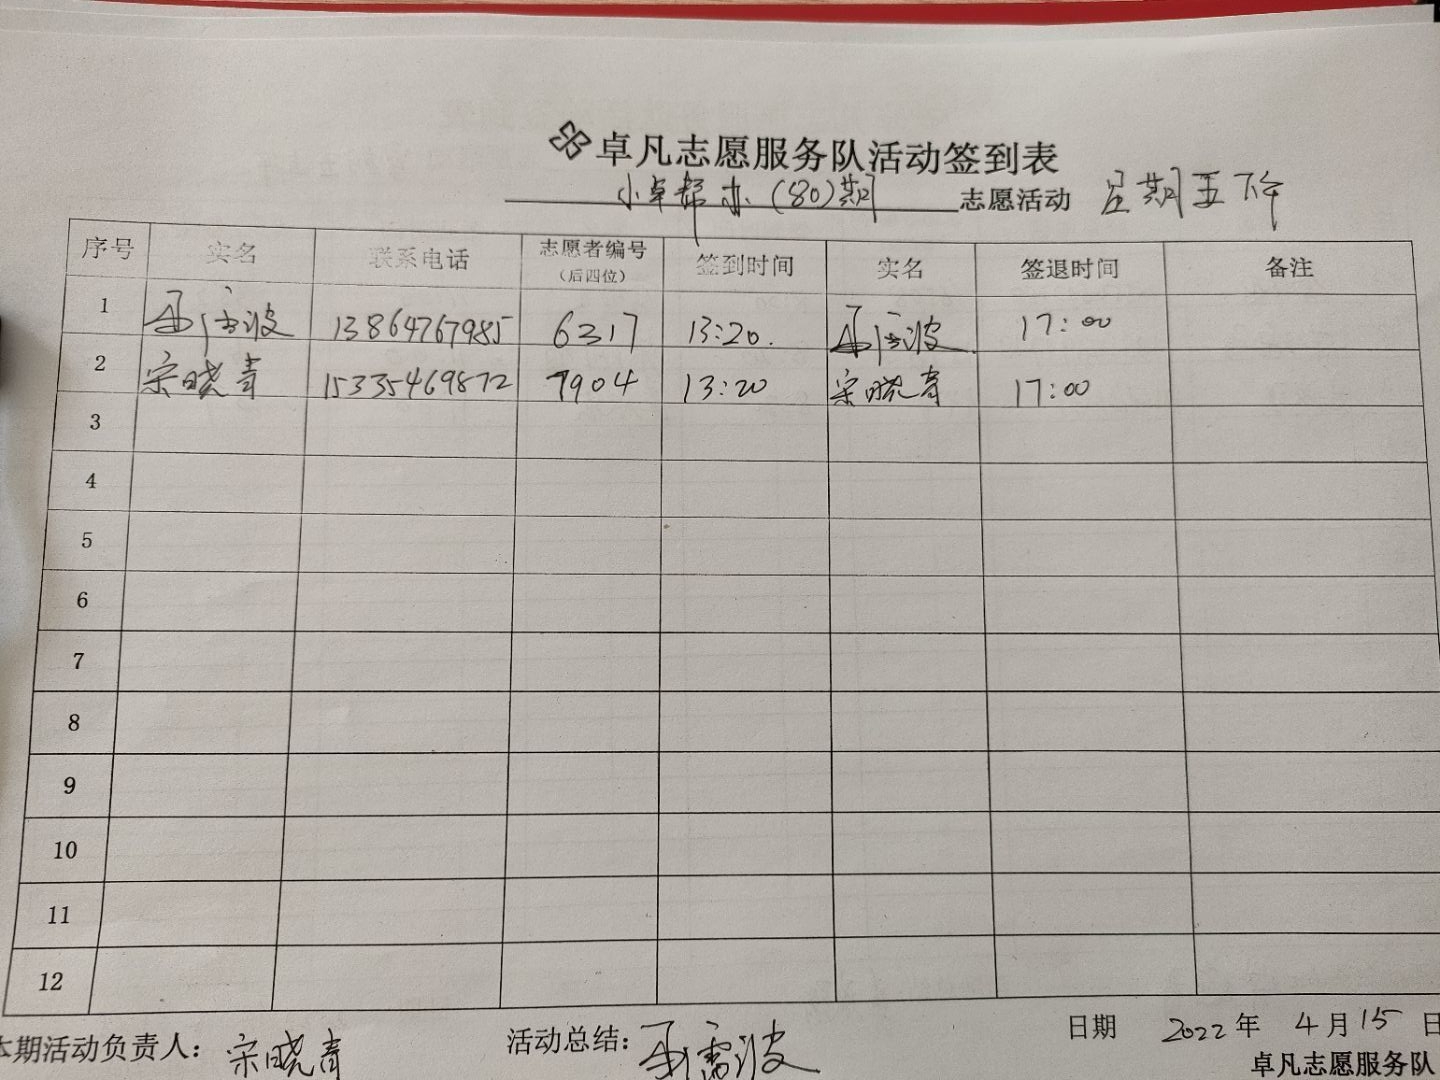 卓凡志愿服务队活动签到表
小卓帮办(80)期 志愿活动 星期五下午
序号 实名 联系电话 志愿者编号（后四位） 签到时间 实名 签退时间 备注
1 波 13864767985 6317 13:20. 波 17:00
2 宋晓青 15335469872 7904 13:20 宋晓青 17:00
3
4
5
6
7
8
9
10
11
12
本期活动负责人：宋晓青 活动总结：波 日期 2022年4月15日
卓凡志愿服务队